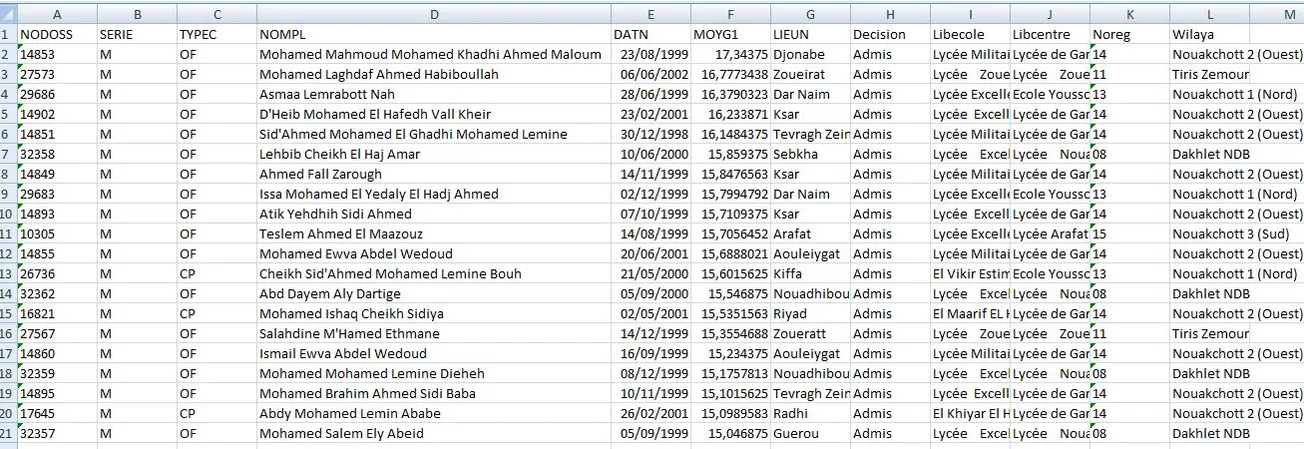 A B C D E F G H I J K L M
1 NODOSS SERIE TYPEC NOMPL DATN MOYG1 LIEUN Decision Libecole Libcentre Noreg Wilaya
2 14853 M OF Mohamed Mahmoud Mohamed Khadhi Ahmed Maloum 23/08/1999 17,34375 Djonabe Admis Lycée Militai Lycée de Gar 14 Nouakchott 2 (Ouest)
3 27573 M OF Mohamed Laghdaf Ahmed Habiboullah 06/06/2002 16,7773438 Zoueirat Admis Lycée Zoue Lycée Zoue 11 Tiris Zemour
4 29686 M OF Asmaa Lemrabott Nah 28/06/1999 16,3790323 Dar Naim Admis Lycée Excelle Ecole Yousso 13 Nouakchott 1 (Nord)
5 14902 M OF D'Heib Mohamed El Hafedh Vall Kheir 23/02/2001 16,233871 Ksar Admis Lycée Excell Lycée de Gar 14 Nouakchott 2 (Ouest)
6 14851 M OF Sid'Ahmed Mohamed El Ghadhi Mohamed Lemine 30/12/1998 16,1484375 Tevragh Zein Admis Lycée Militai Lycée de Gar 14 Nouakchott 2 (Ouest)
7 32358 M OF Lehbib Cheikh El Haj Amar 10/06/2000 15,859375 Sebkha Admis Lycée Excel Lycée Noua 08 Dakhlet NDB
8 14849 M OF Ahmed Fall Zarough 14/11/1999 15,8476563 Ksar Admis Lycée Militai Lycée de Gar 14 Nouakchott 2 (Ouest)
9 29683 M OF Issa Mohamed El Yedaly El Hadj Ahmed 02/12/1999 15,7994792 Dar Naim Admis Lycée Excelle Ecole Yousso 13 Nouakchott 1 (Nord)
10 14893 M OF Atik Yehdhih Sidi Ahmed 07/10/1999 15,7109375 Ksar Admis Lycée Excell Lycée de Gar 14 Nouakchott 2 (Ouest)
11 10305 M OF Teslem Ahmed El Maazouz 14/08/1999 15,7056452 Arafat Admis Lycée Excelle Lycée Arafat 15 Nouakchott 3 (Sud)
12 14855 M OF Mohamed Ewva Abdel Wedoud 20/06/2001 15,6888021 Aouleiygat Admis Lycée Militai Lycée de Gar 14 Nouakchott 2 (Ouest)
13 26736 M CP Cheikh Sid'Ahmed Mohamed Lemine Bouh 21/05/2000 15,6015625 Kiffa Admis El Vikir Estim Ecole Yousso 13 Nouakchott 1 (Nord)
14 32362 M OF Abd Dayem Aly Dartige 05/09/2000 15,546875 Nouadhibou Admis Lycée Excel Lycée Noua 08 Dakhlet NDB
15 16821 M CP Mohamed Ishaq Cheikh Sidiya 02/05/2001 15,5351563 Riyad Admis El Maarif EL H Lycée de Gar 14 Nouakchott 2 (Ouest)
16 27567 M OF Salahdine M'Hamed Ethmane 14/12/1999 15,3554688 Zoueratt Admis Lycée Zoue Lycée Zoue 11 Tiris Zemour
17 14860 M OF Ismail Ewva Abdel Wedoud 16/09/1999 15,234375 Aouleiygat Admis Lycée Militai Lycée de Gar 14 Nouakchott 2 (Ouest)
18 32359 M OF Mohamed Mohamed Lemine Dieheh 08/12/1999 15,1757813 Nouadhibou Admis Lycée Excel Lycée Noua 08 Dakhlet NDB
19 14895 M OF Mohamed Brahim Ahmed Sidi Baba 10/11/1999 15,1015625 Tevragh Zein Admis Lycée Excell Lycée de Gar 14 Nouakchott 2 (Ouest)
20 17645 M CP Abdy Mohamed Lemin Ababe 26/02/2001 15,0989583 Radhi Admis El Khiyar El H Lycée de Gar 14 Nouakchott 2 (Ouest)
21 32357 M OF Mohamed Salem Ely Abeid 05/09/1999 15,046875 Guerou Admis Lycée Excel Lycée Noua 08 Dakhlet NDB